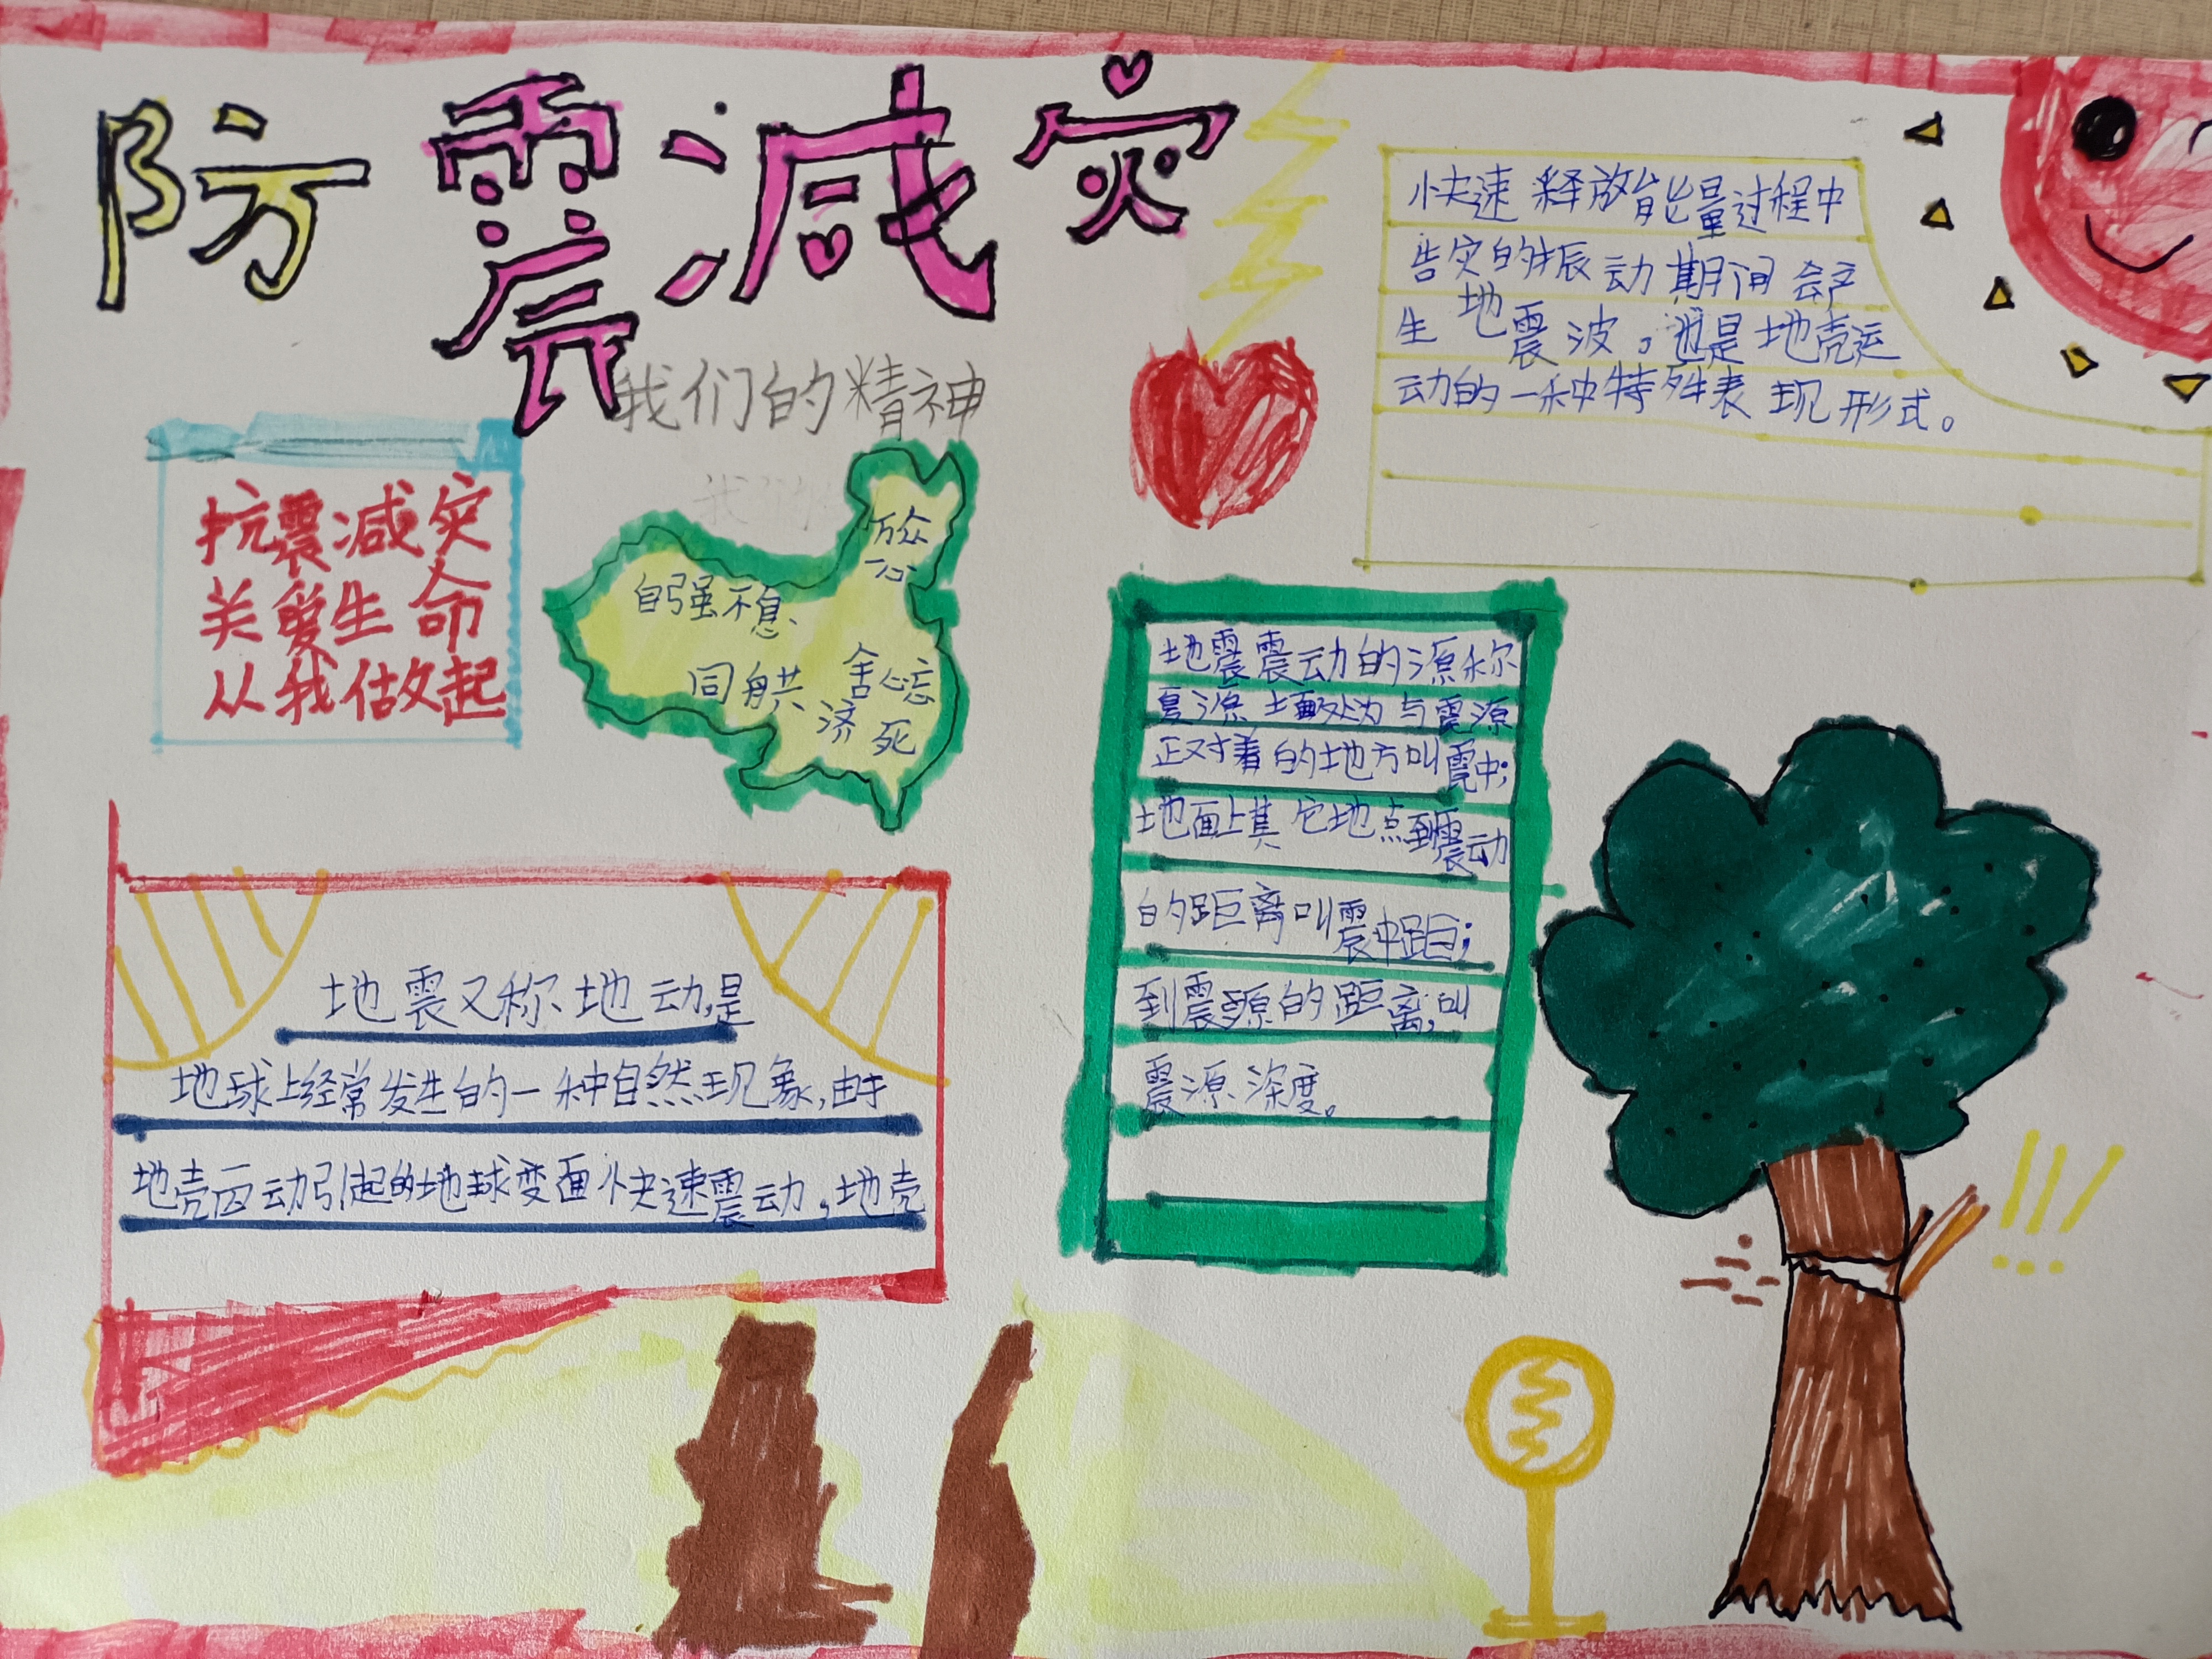 防震减灾
我们的精神
抗震减灾
关爱生命
从我做起
万众
一心
自强不息
同舟共
济
舍
忘
死
快速释放能量过程中
告灾的振动期间会产
生地震波。也是地壳运
动的一种特殊表现形式。
地震又称地动,是
地球上经常发生的一种自然现象,由于
地壳 动引起的地球 面快速震动,地壳
地震震动的源称
源 与震源
正对着的地方叫震中;
地面上其它地点到震动
的距离叫震中距;
到震源的距离,叫
震源深度。